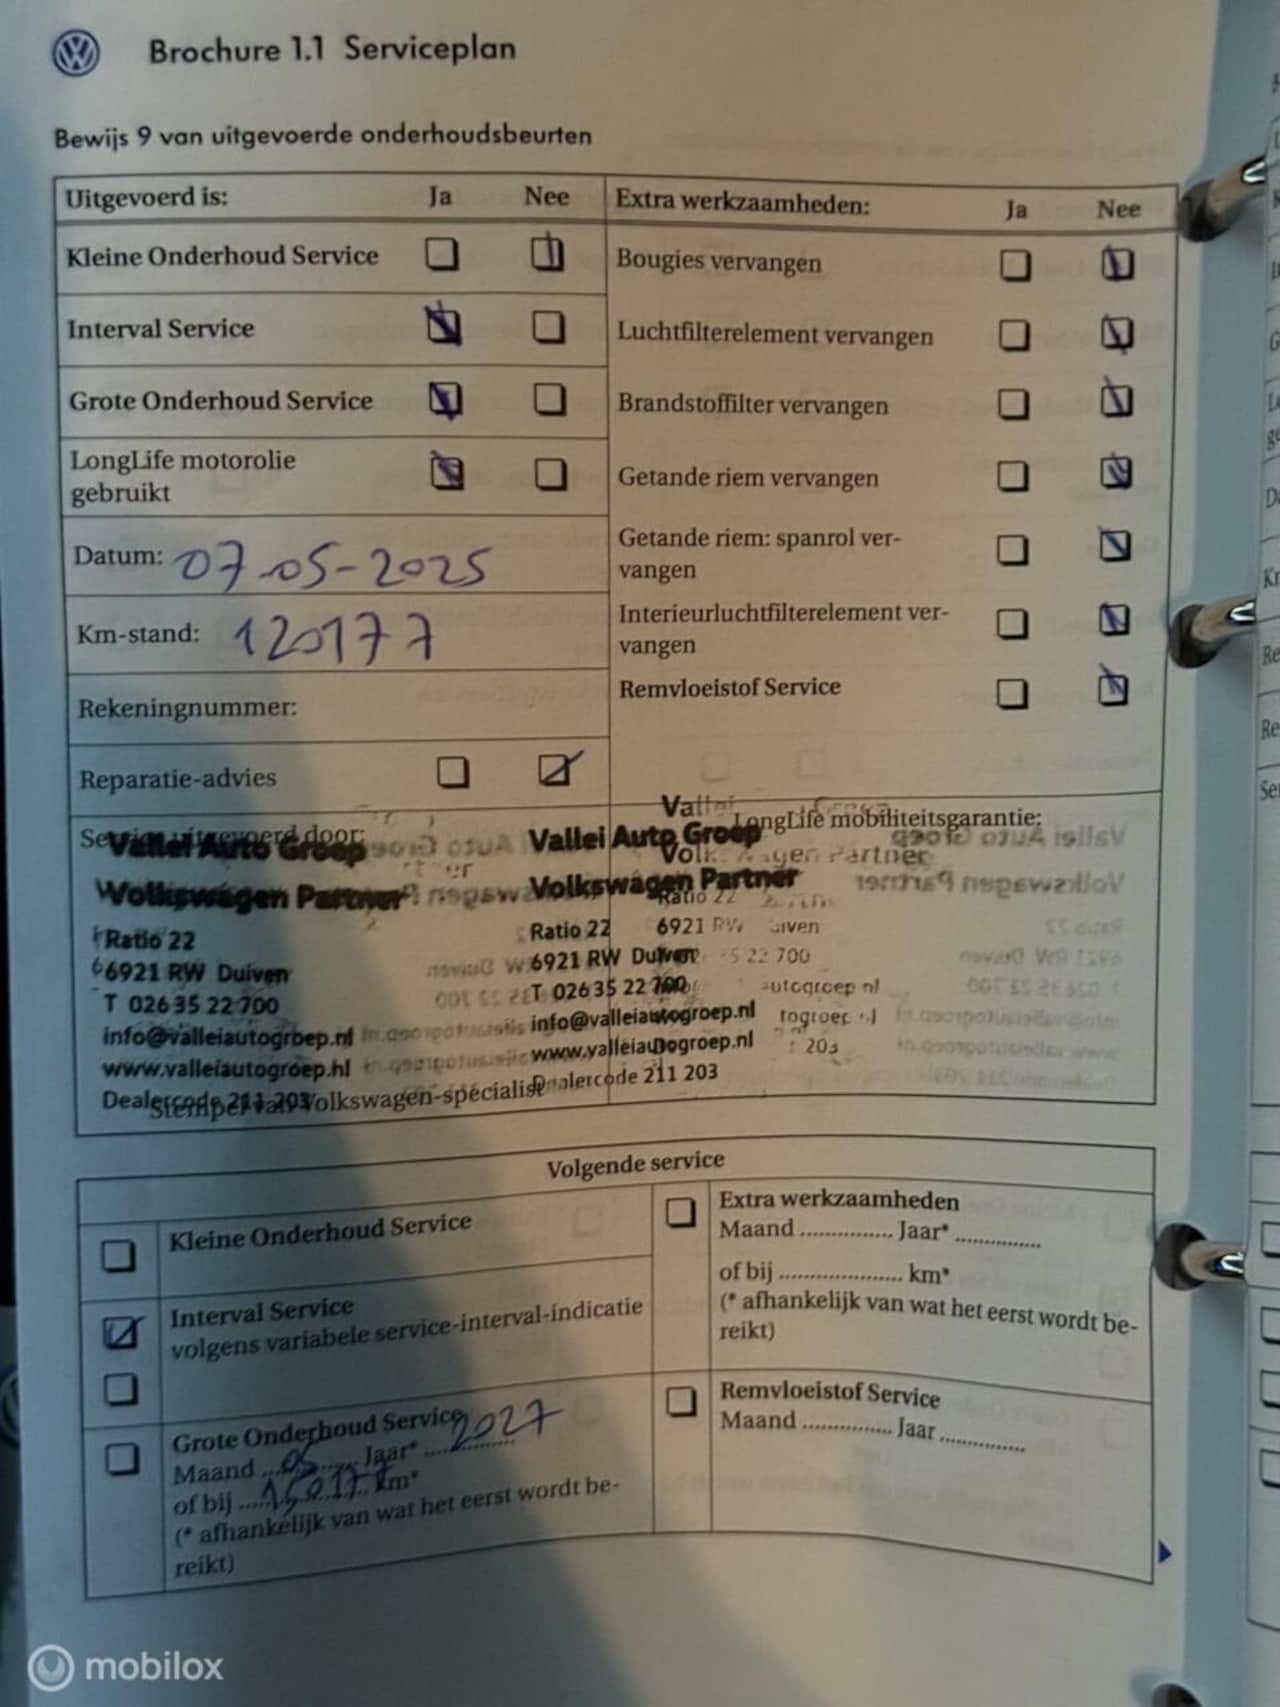 Brochure 1.1 Serviceplan
Bewijs 9 van uitgevoerde onderhoudsbeurten
Uitgevoerd is: Ja Nee
Kleine Onderhoud Service
Interval Service
Grote Onderhoud Service
LongLife motorolie
gebruikt
Datum: 07-05-2025
Km-stand: 120177
Rekeningnummer:
Reparatie-advies
Extra werkzaamheden: Ja Nee
Bougies vervangen
Luchtfilterelement vervangen
Brandstoffilter vervangen
Getande riem vervangen
Getande riem: spanrol ver-
vangen
Interieurluchtfilterelement ver-
vangen
Remvloeistof Service
Service uitgevoerd door:
Vallei Auto Groep
Volkswagen Partner
Ratio 22
6921 RW Duiven
T 026 35 22 700
info@valleiautogroep.nl
www.valleiautogroep.nl
Dealercode 211 203
Stempel van Volkswagen-specialist
LongLife mobiliteitsgarantie:
Vallei Auto Groep
Volkswagen Partner
Ratio 22
6921 RW Duiven
T 026 35 22 700
info@valleiautogroep.nl
www.valleiautogroep.nl
Dealercode 211 203
Volgende service
Kleine Onderhoud Service
Interval Service
volgens variabele service-interval-indicatie
Grote Onderhoud Service
Maand 05 Jaar* 2027
of bij km*
(* afhankelijk van wat het eerst wordt be-
reikt)
Extra werkzaamheden
Maand ............... Jaar* ..............
of bij .................... km*
(* afhankelijk van wat het eerst wordt be-
reikt)
Remvloeistof Service
Maand ............... Jaar ..............
mobilox